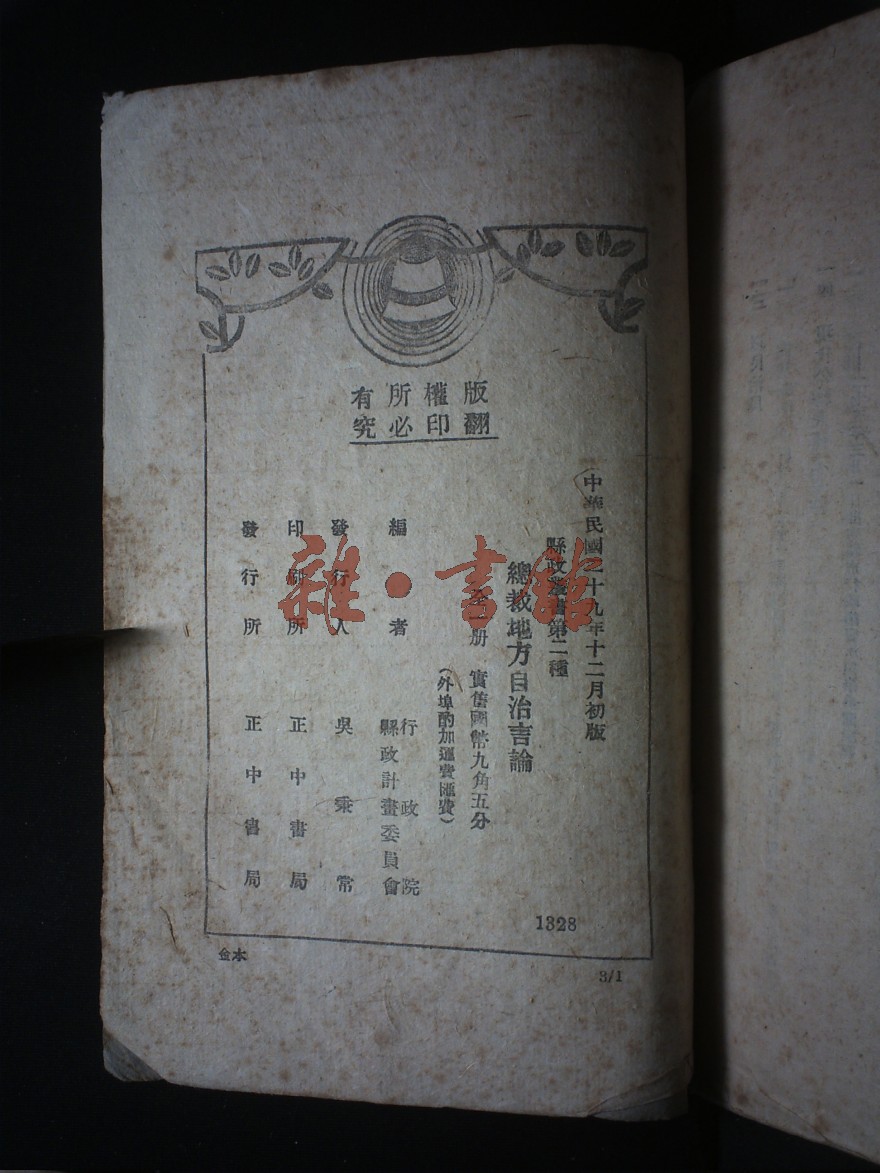 版權所有
翻印必究
中華民國二十九年十二月初版
縣政叢書第二種
總裁地方自治言論
全一册 實售國幣九角五分
(外埠酌加運費匯費)
編者 行政院
縣政計畫委員會
發行人 吳秉常
印刷所 正中書局
發行所 正中書局
1328
金本
3/1
雜·書館